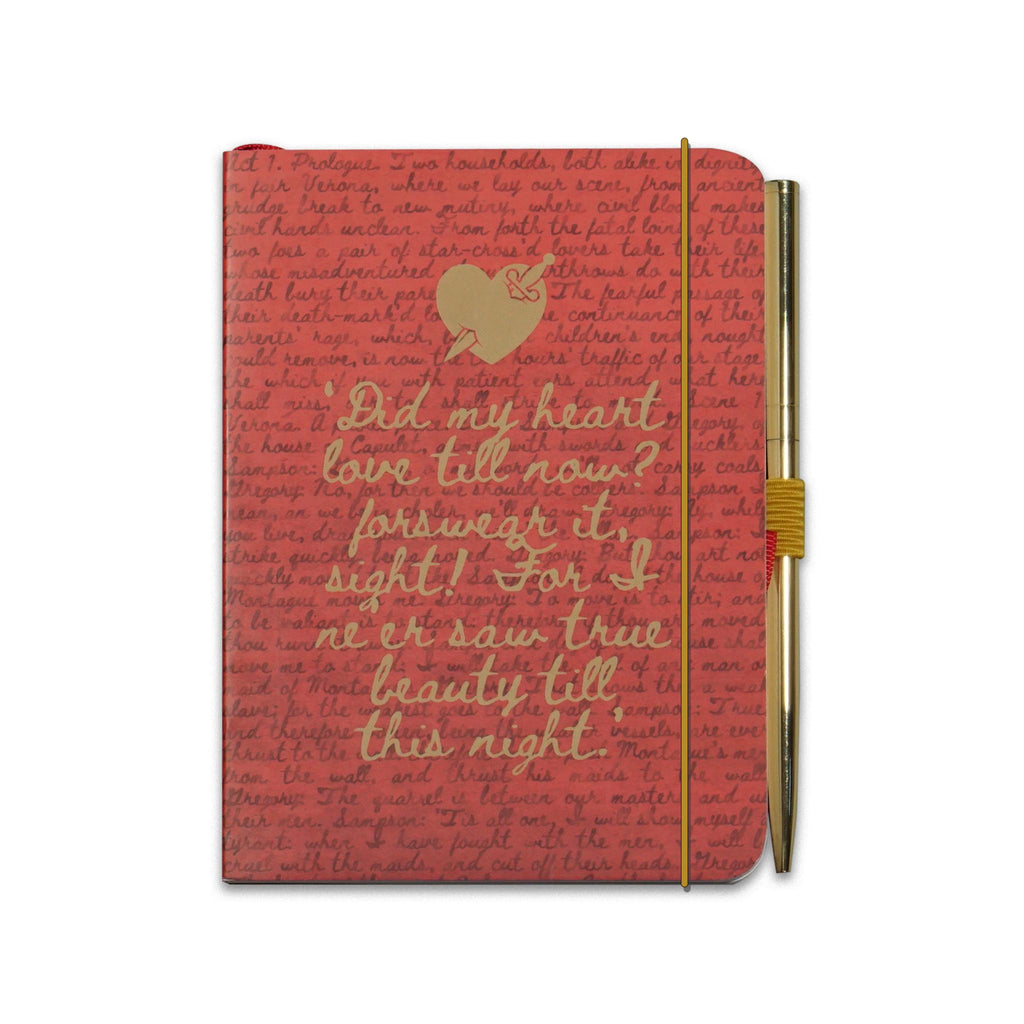 Act 1. Prologue. Two households, both alike in dignity
in fair Verona, where we lay our scene, from ancient
grudge break to new mutiny, where civil blood makes
civil hands unclean. From forth the fatal loins of these
two foes a pair of star-cross'd lovers take their life
whose misadventured rthrows do with their
death bury their pare The fearful passage of
their death-mark'd lo continuance of their
parents' rage, which, children's end, nought
could remove, is now the hours' traffic of our stage
the which if you with patient ears attend, what here
shall miss, strive to
Verona. A
the house Capulet, with swords bucklers
Sampson: carry coals
Gregory: No, for then we should be colliers. Sampson
mean, an we be in choler, we'll draw. Gregory: Ay, while
you live, draw Sampson: I
strike quickly being moved. Gregory: But thou art not
quickly mo the house of
Montague moves me. Gregory: To move is to stir; and
to be valiant is to stand: therefore, thou art moved
thou run
move me to stand: I will take the of any man or
maid of Monta shows thee a weak
slave; for the weakest goes the wall. Sampson: True
and therefore being the vessels, are ever
thrust to the Montague's men
from the wall, and thrust his maids to the wall
Gregory: The quarrel is between our masters and us
their men. Sampson: 'Tis all one, I will show myself a
tyrant: when I have fought with the men, I will b
cruel with the maids, and cut off their heads. Gregory
'Did my heart
love till now?
forswear it,
sight! For I
ne'er saw true
beauty till
this night.'